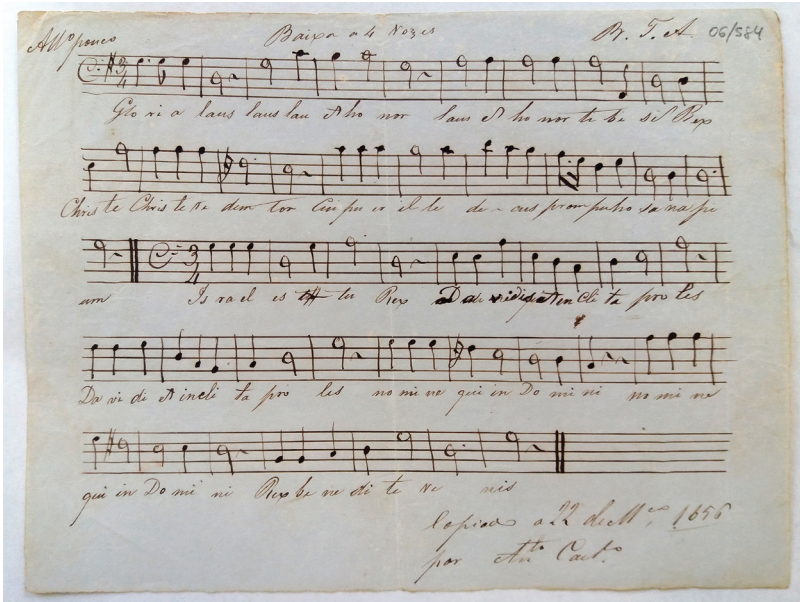 All.o pouco Baixa a 4 Vozes Pr. T. A. 06/584
3 4
Glo ri a laus laus lau et ho nor laus et ho nor ti bi sit Rex
Chris te Chris te re dem tor cui pu er il le de cus promp sit ho sa na pi
um 3 4 Is ra el es tu Rex Da vidis et in cli ta pro les
Da vi di et incli ta pro les no mi ne qui in Do mi ni no mi ne
qui in Do mi ni Rex be ne di te ve nis
Copiado a 22 de M.ço 1856
por An.to